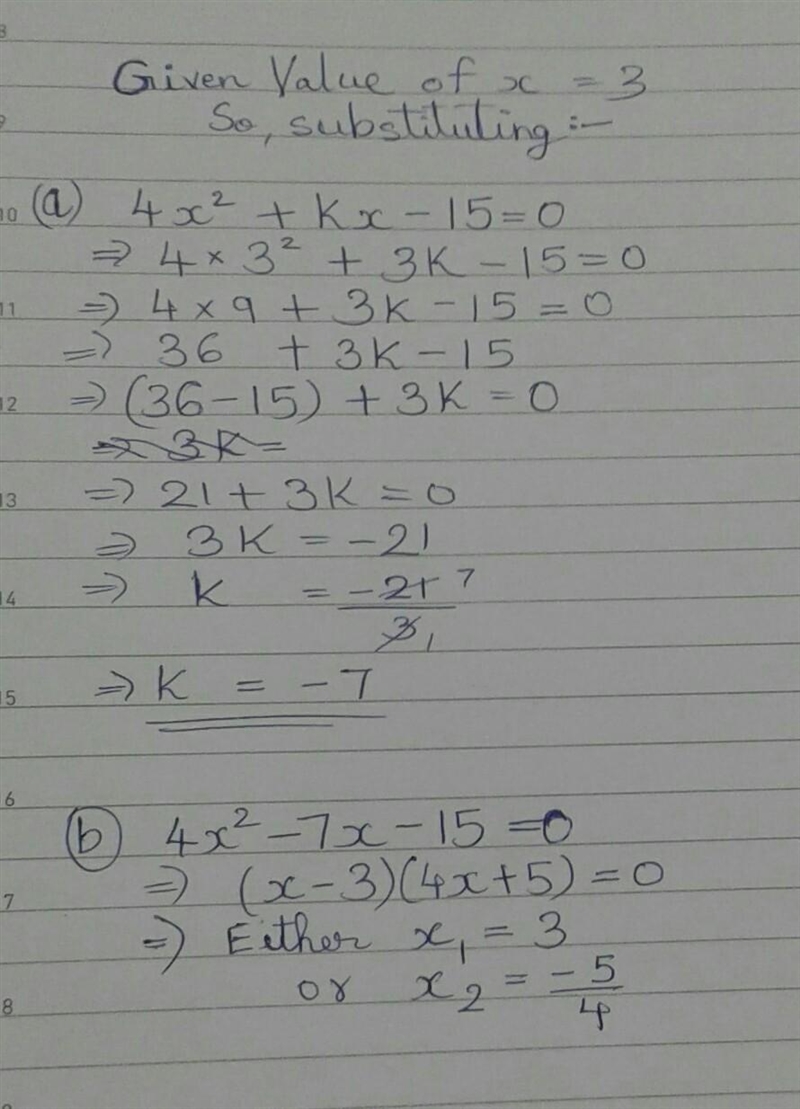 Given Value of x = 3
So, substituting :-
(a) 4x² + Kx - 15 = 0
⇒ 4 × 3² + 3K - 15 = 0
⇒ 4 × 9 + 3K - 15 = 0
⇒ 36 + 3K - 15
⇒ (36 - 15) + 3K = 0
⇒ 3K =
⇒ 21 + 3K = 0
⇒ 3K = -21
⇒ K = -21 7
3 1
⇒ K = -7
(b) 4x² - 7x - 15 = 0
⇒ (x - 3)(4x + 5) = 0
⇒ Either x₁ = 3
or x₂ = -5
4
8
9
10
11
12
13
14
15
6
7
8